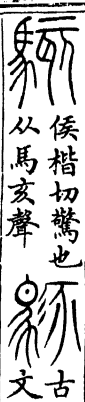 駭
侯楷切驚也
从馬亥聲
古
文